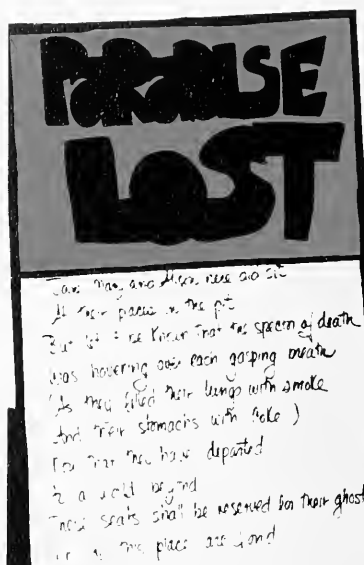 PARADISE
LOST
and here did sit
At their places in the pit
But let it be known that the spectre of death
Was hovering over each gasping breath
(As they filled their lungs with smoke
And their stomachs with Coke)
that they have departed
a world beyond
These seats shall be reserved for their ghost
place are fond